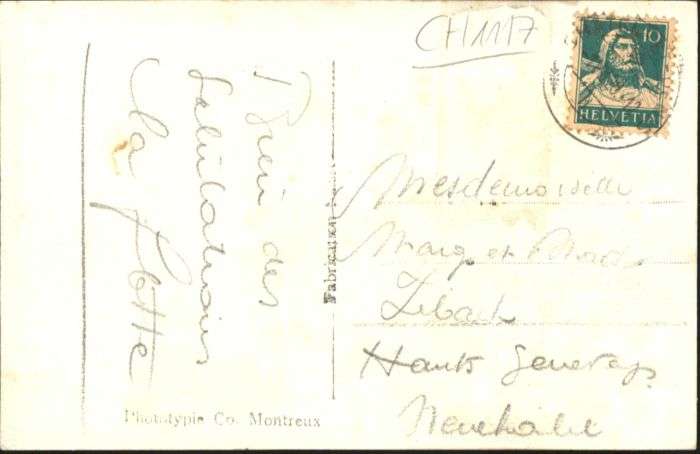 CH1117
10
HELVETIA
Bien des
salutations
la flotte
Fabrication
Mesdemoiselle
Marg et
Zibach
Hauts Geneveys
Neuchatel
Phototypie Co. Montreux